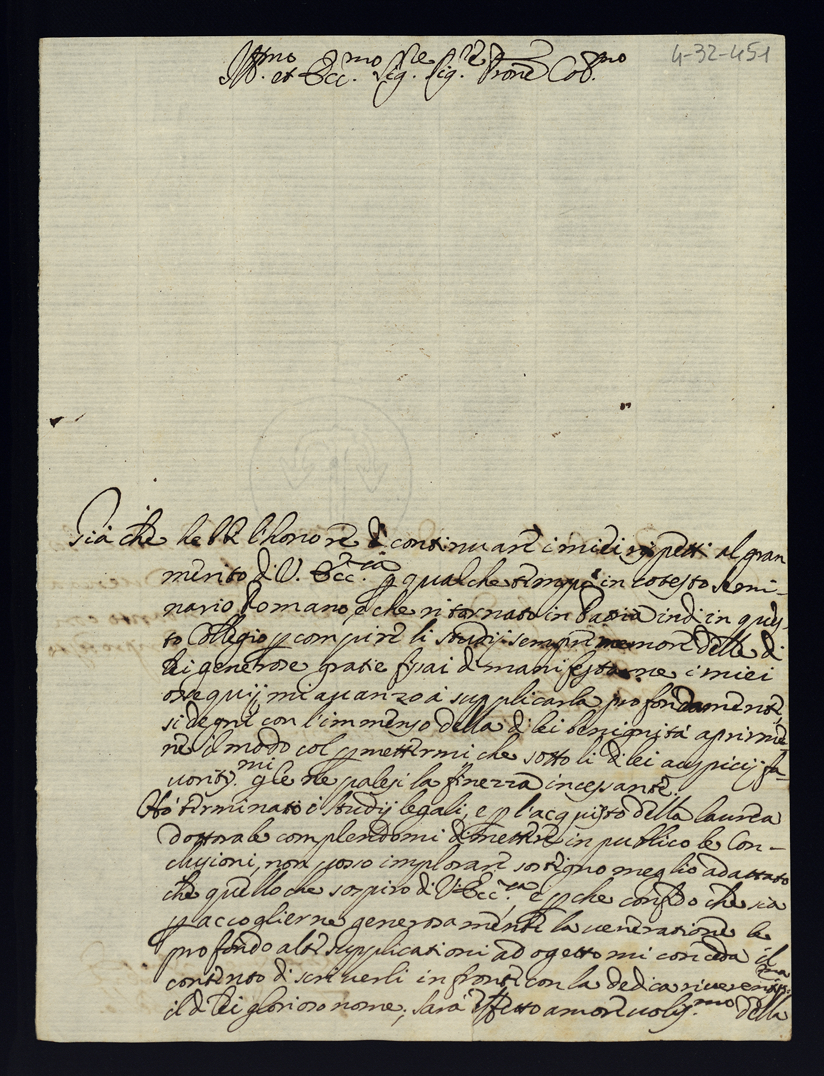 4-32-451
Ill.mo et Ecc.mo Sig.re Sig.re Prone Col.mo
Già che hebbi l'honore di continuare i miei rispetti al gran
merito di V. Ecc.za p qualche tempo in cotesto Semi-
nario Romano, e che ritornato in Pavia indi in ques-
to Collegio p compire li studij sempre memore delle di
lei generose gratie bramai di manifestarne i miei
ossequij mi avanzo à supplicarla profondamente,
si degni con l'immenso della di lei benignità aprirme-
ne il modo col pmettermi che sotto li di lei auspicij fa-
vorit.mi gle ne palesi la finezza incessante.
Hò terminato i studij legali, e p l'acquisto della laurea
dottorale complendomi di mettere in publico le Con-
clusioni, non posso implorare sostegno meglio adattato
che quello che sospiro di V. Ecc.za e pche confido che sia
p accoglierne generosamente la veneratione le
profondo alte supplicationi ad ogetto mi conceda il
contento di scriverli in fronte con la dedica riverentis.ma
il di lei glorioso nome; sarà effetto amorevolis.mo della